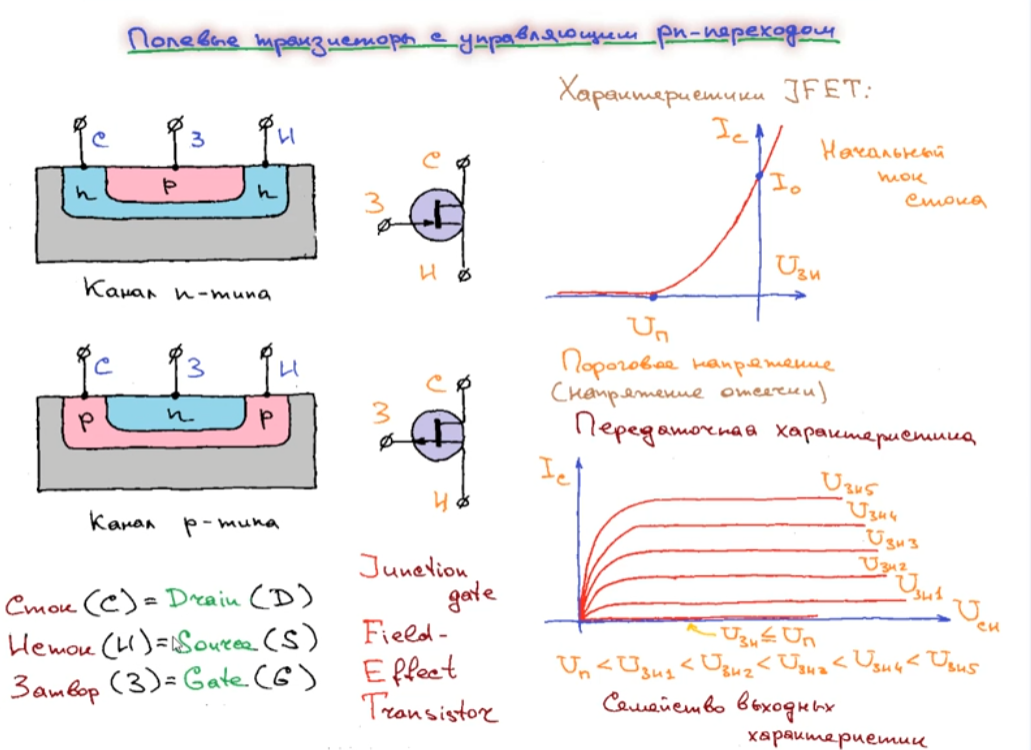 Полевые транзисторы с управляющим pn-переходом
С З И
n p n
Канал n-типа
С
З
И
С З И
p n p
Канал p-типа
С
З
И
Сток (С) = Drain (D)
Исток (И) = Source (S)
Затвор (З) = Gate (G)
Junction
gate
Field-
Effect
Transistor
Характеристики JFET:
Iс
Начальный
ток
стока
I₀
Uзи
Uп
Пороговое напряжение
(напряжение отсечки)
Передаточная характеристика
Iс
Uзи5
Uзи4
Uзи3
Uзи2
Uзи1
Uси
Uзи ≤ Uп
Uп < Uзи1 < Uзи2 < Uзи3 < Uзи4 < Uзи5
Семейство выходных
характеристик